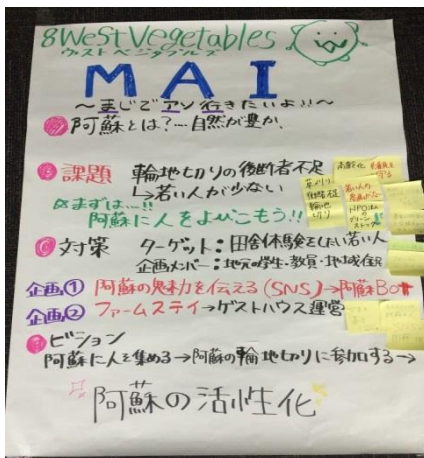 8WestVegetables
ウェストベジタブルズ
MAI
〜まじでアソ行きたいよ!!〜
阿蘇とは?…自然が豊か.
課題 輪地切りの後断者不足
↳若い人が少ない
まずは…!!
阿蘇に人をよびこもう!!
高齢化
草刈り
輪地切り
若い人の
NPO法人
グリーンストック
対策 ターゲット:田舎体験をしたい若い人
企画メンバー:地元の学生・教員・地域住民
企画① 阿蘇の魅力を伝える(SNS)→阿蘇Bot
企画② ファームステイ→ゲストハウス運営
ビジョン
阿蘇に人を集める→阿蘇の輪地切りに参加する→
阿蘇の活性化